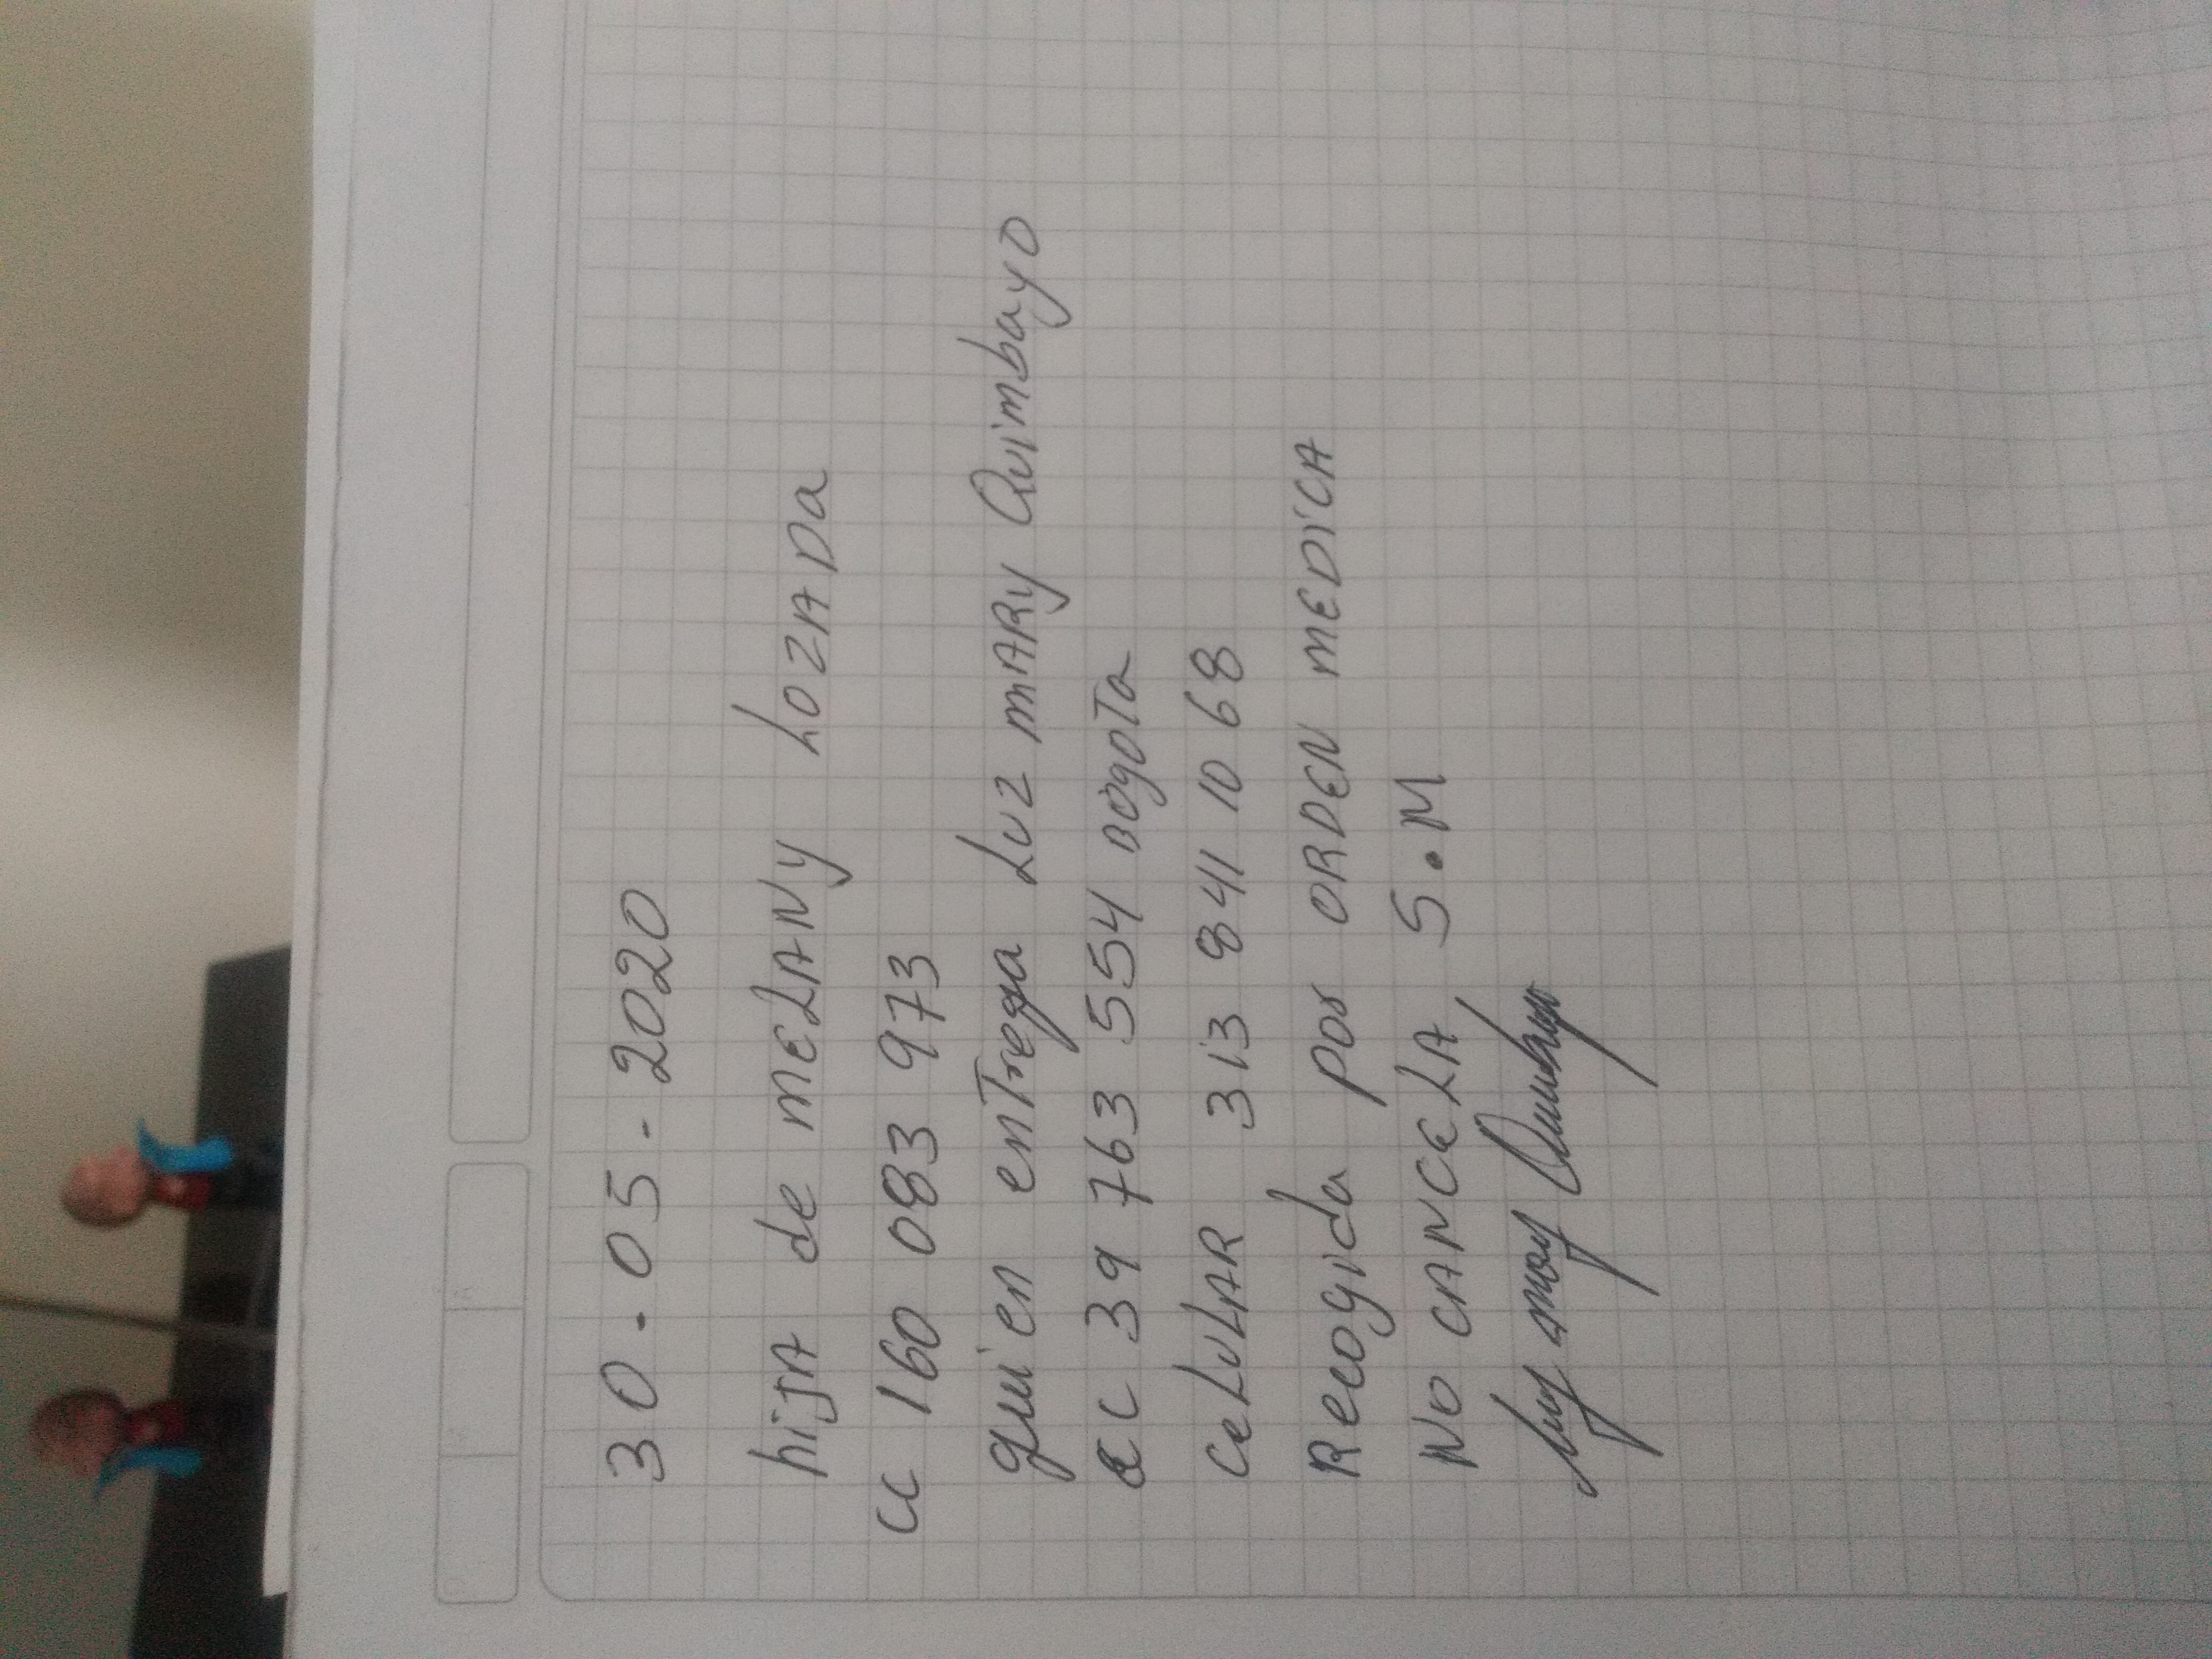 30-05-2020
hijA de mELANy LozADa
CC 160 083 973
quien enTrega Luz mARy Quimbayo
CC 39 763 554 Bogota
CeLuLAR 313 841 10 68
Recogida por ORDEN mEDiCA
No CANCELA S.M
Luz mary Quimbayo